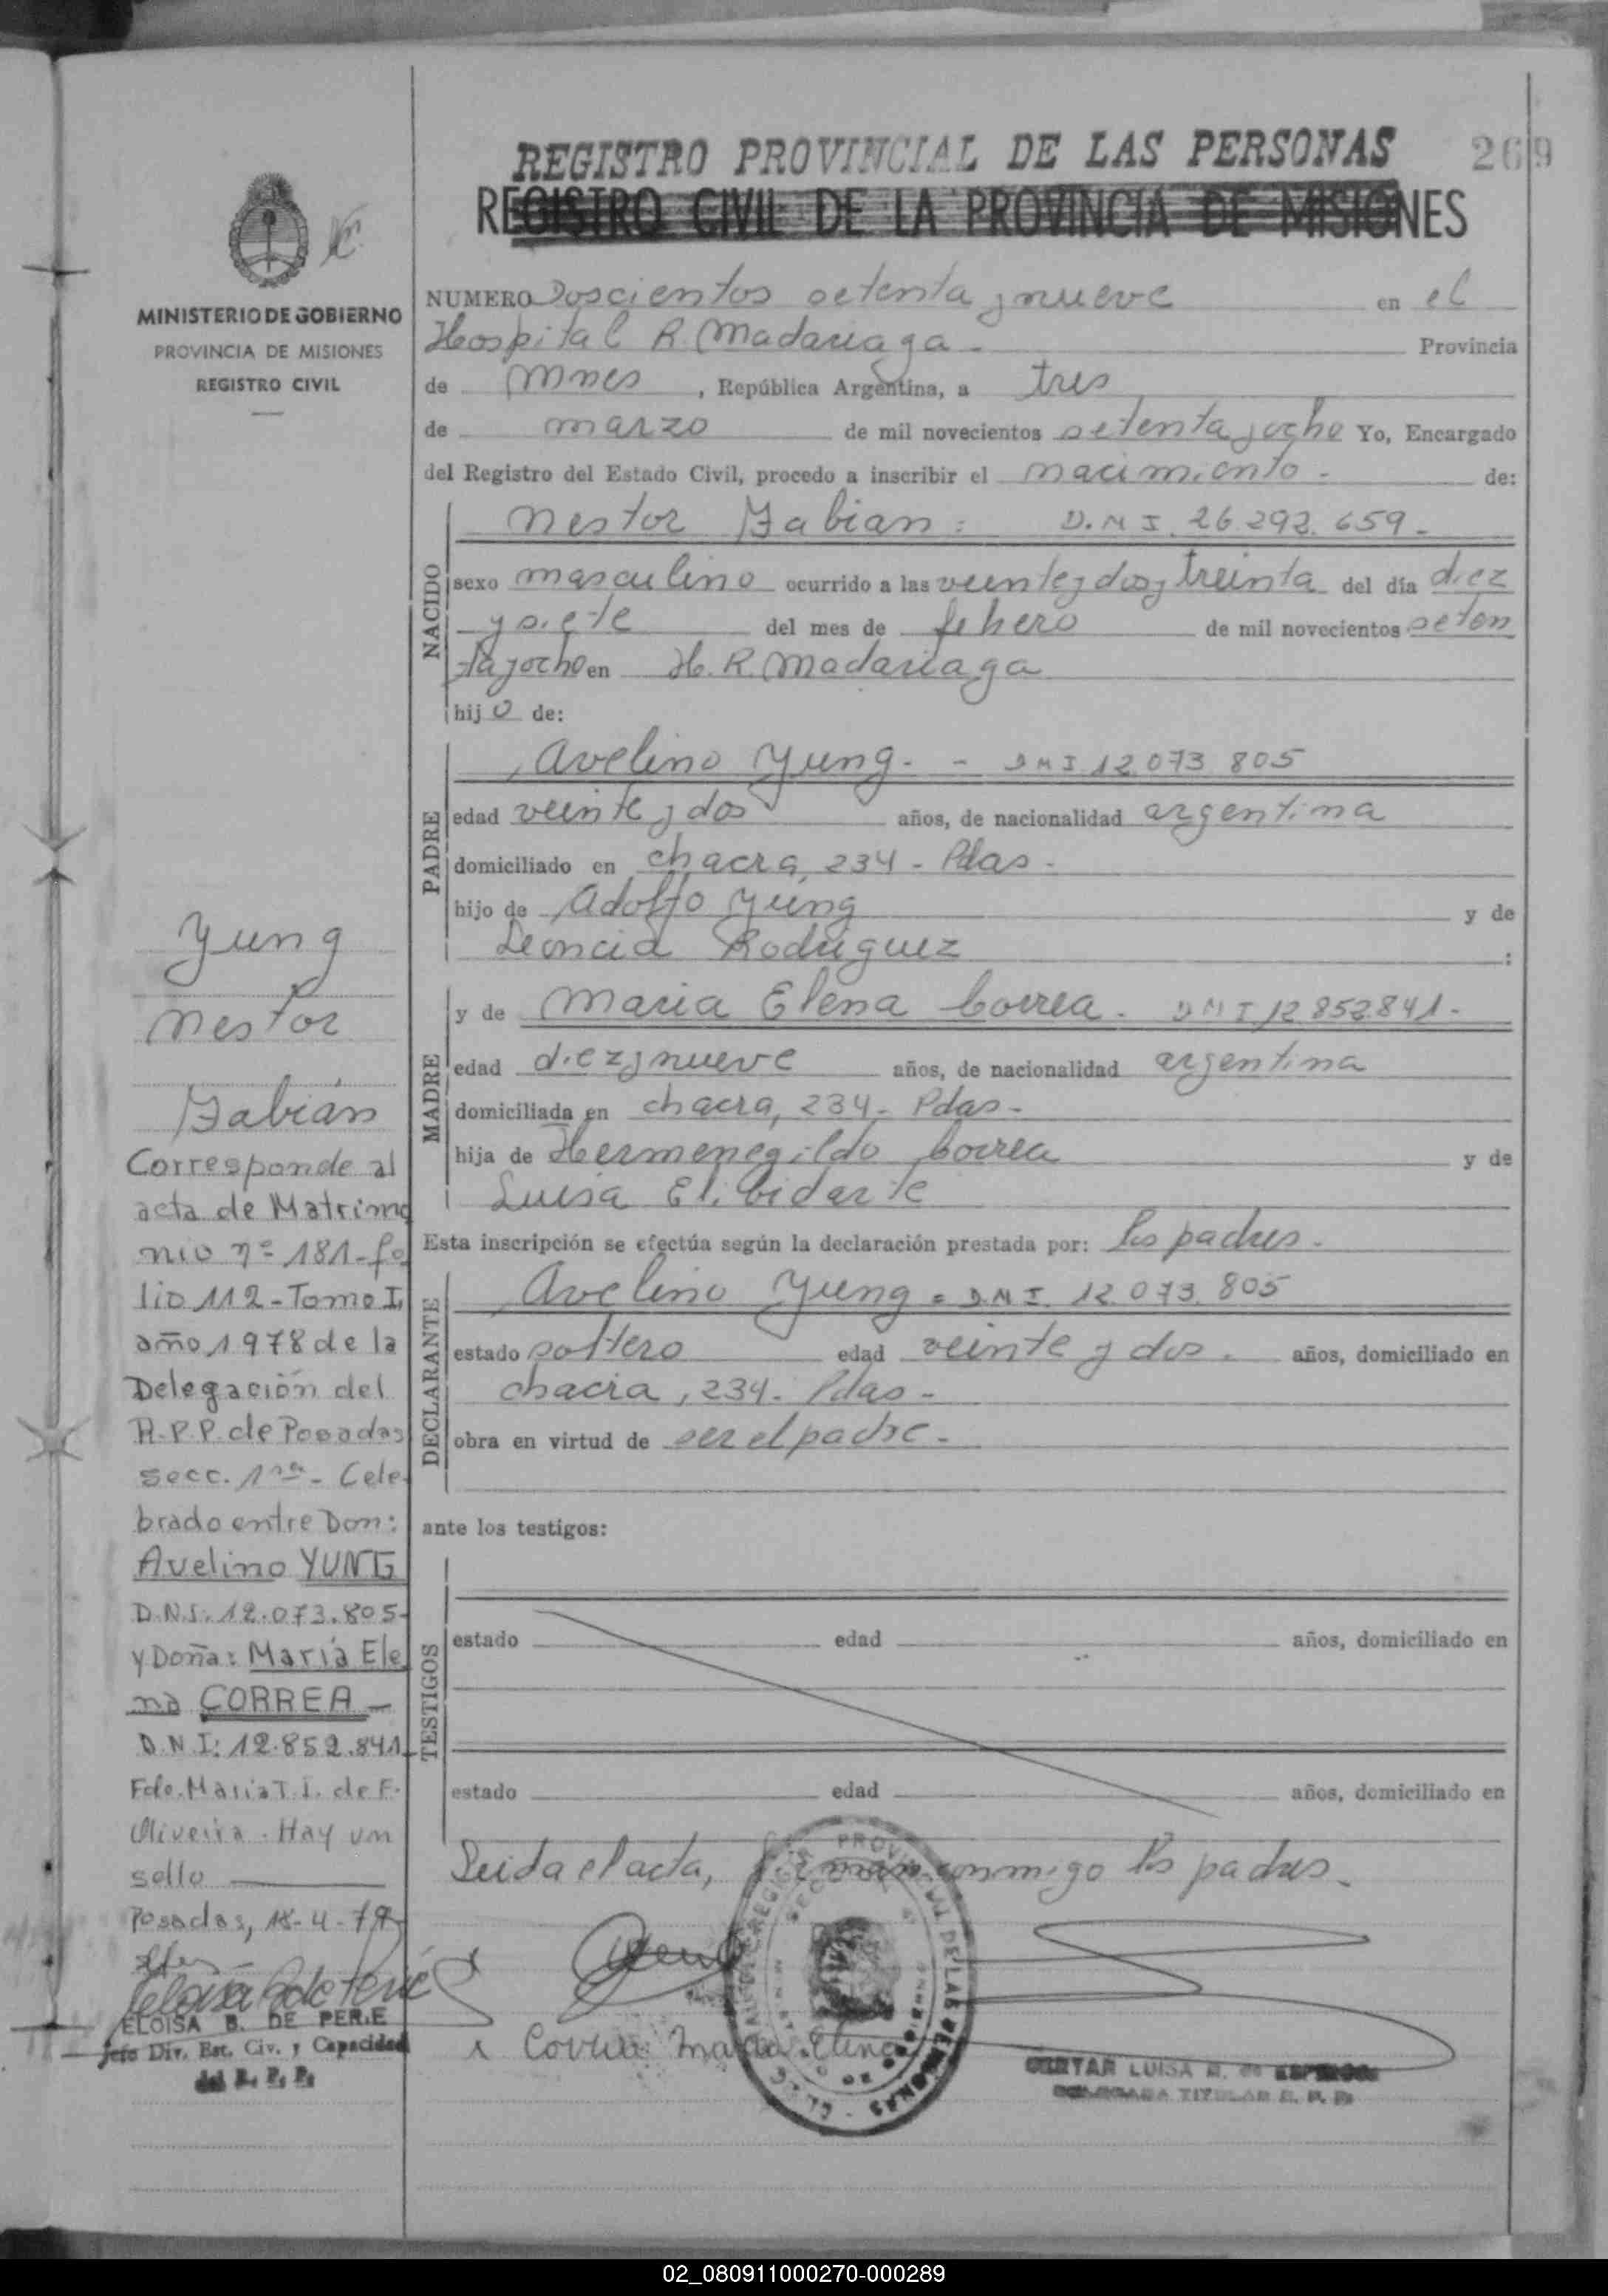 REGISTRO PROVINCIAL DE LAS PERSONAS
269
REGISTRO CIVIL DE LA PROVINCIA DE MISIONES
MINISTERIO DE GOBIERNO
PROVINCIA DE MISIONES
REGISTRO CIVIL
NUMERO Doscientos setenta y nueve en el
Hospital R. Madariaga - Provincia
de Mnes, República Argentina, a tres
de marzo de mil novecientos setenta y ocho Yo, Encargado
del Registro del Estado Civil, procedo a inscribir el nacimiento - de:
NACIDO
Nestor Fabian = D.N.I. 26.292.659-
sexo masculino ocurrido a las veinte y dos y treinta del día diez
y siete del mes de febrero de mil novecientos seten
ta y ocho en H. R. Madariaga
hijo de:
PADRE
Avelino Yung. - D.N.I. 12.073.805
edad veinte y dos años, de nacionalidad argentina
domiciliado en chacra, 234 - Pdas -
hijo de Adolfo Yung y de
Leoncia Rodriguez :
MADRE
y de Maria Elena Correa. D.N.I 12.852.841-
edad diez y nueve años, de nacionalidad argentina
domiciliada en chacra, 234- Pdas-
hija de Hermenegildo Correa y de
Luisa Elibidarte
Esta inscripción se efectúa según la declaración prestada por: los padres-
DECLARANTE
Avelino Yung = D.N.I. 12.073.805
estado soltero edad veinte y dos. años, domiciliado en
chacra, 234- Pdas-
obra en virtud de ser el padre-
ante los testigos:
TESTIGOS
estado edad años, domiciliado en
estado edad años, domiciliado en
Leida el acta, firman conmigo los padres.
Correa Maria Elena
LUISA
TITULAR R. P. P.
Yung
Nestor
Fabián
Corresponde al
acta de Matrimo
nio nº 181-fo
lio 112-Tomo I,
año 1978 de la
Delegación del
R.P.P. de Posadas
secc. 1ra- Cele-
brado entre Don:
Avelino YUNG
D.N.I. 12.073.805-
y Doña: María Ele
na CORREA-
D.N.I: 12.852.841-
Fdo. María T. I. de F.
Oliveira. Hay un
sello
Posadas, 18-4-79
ELOISA B. DE PERIE
Jefe Div. Est. Civ. y Capacidad
del R. P. P.
02_080911000270-000289